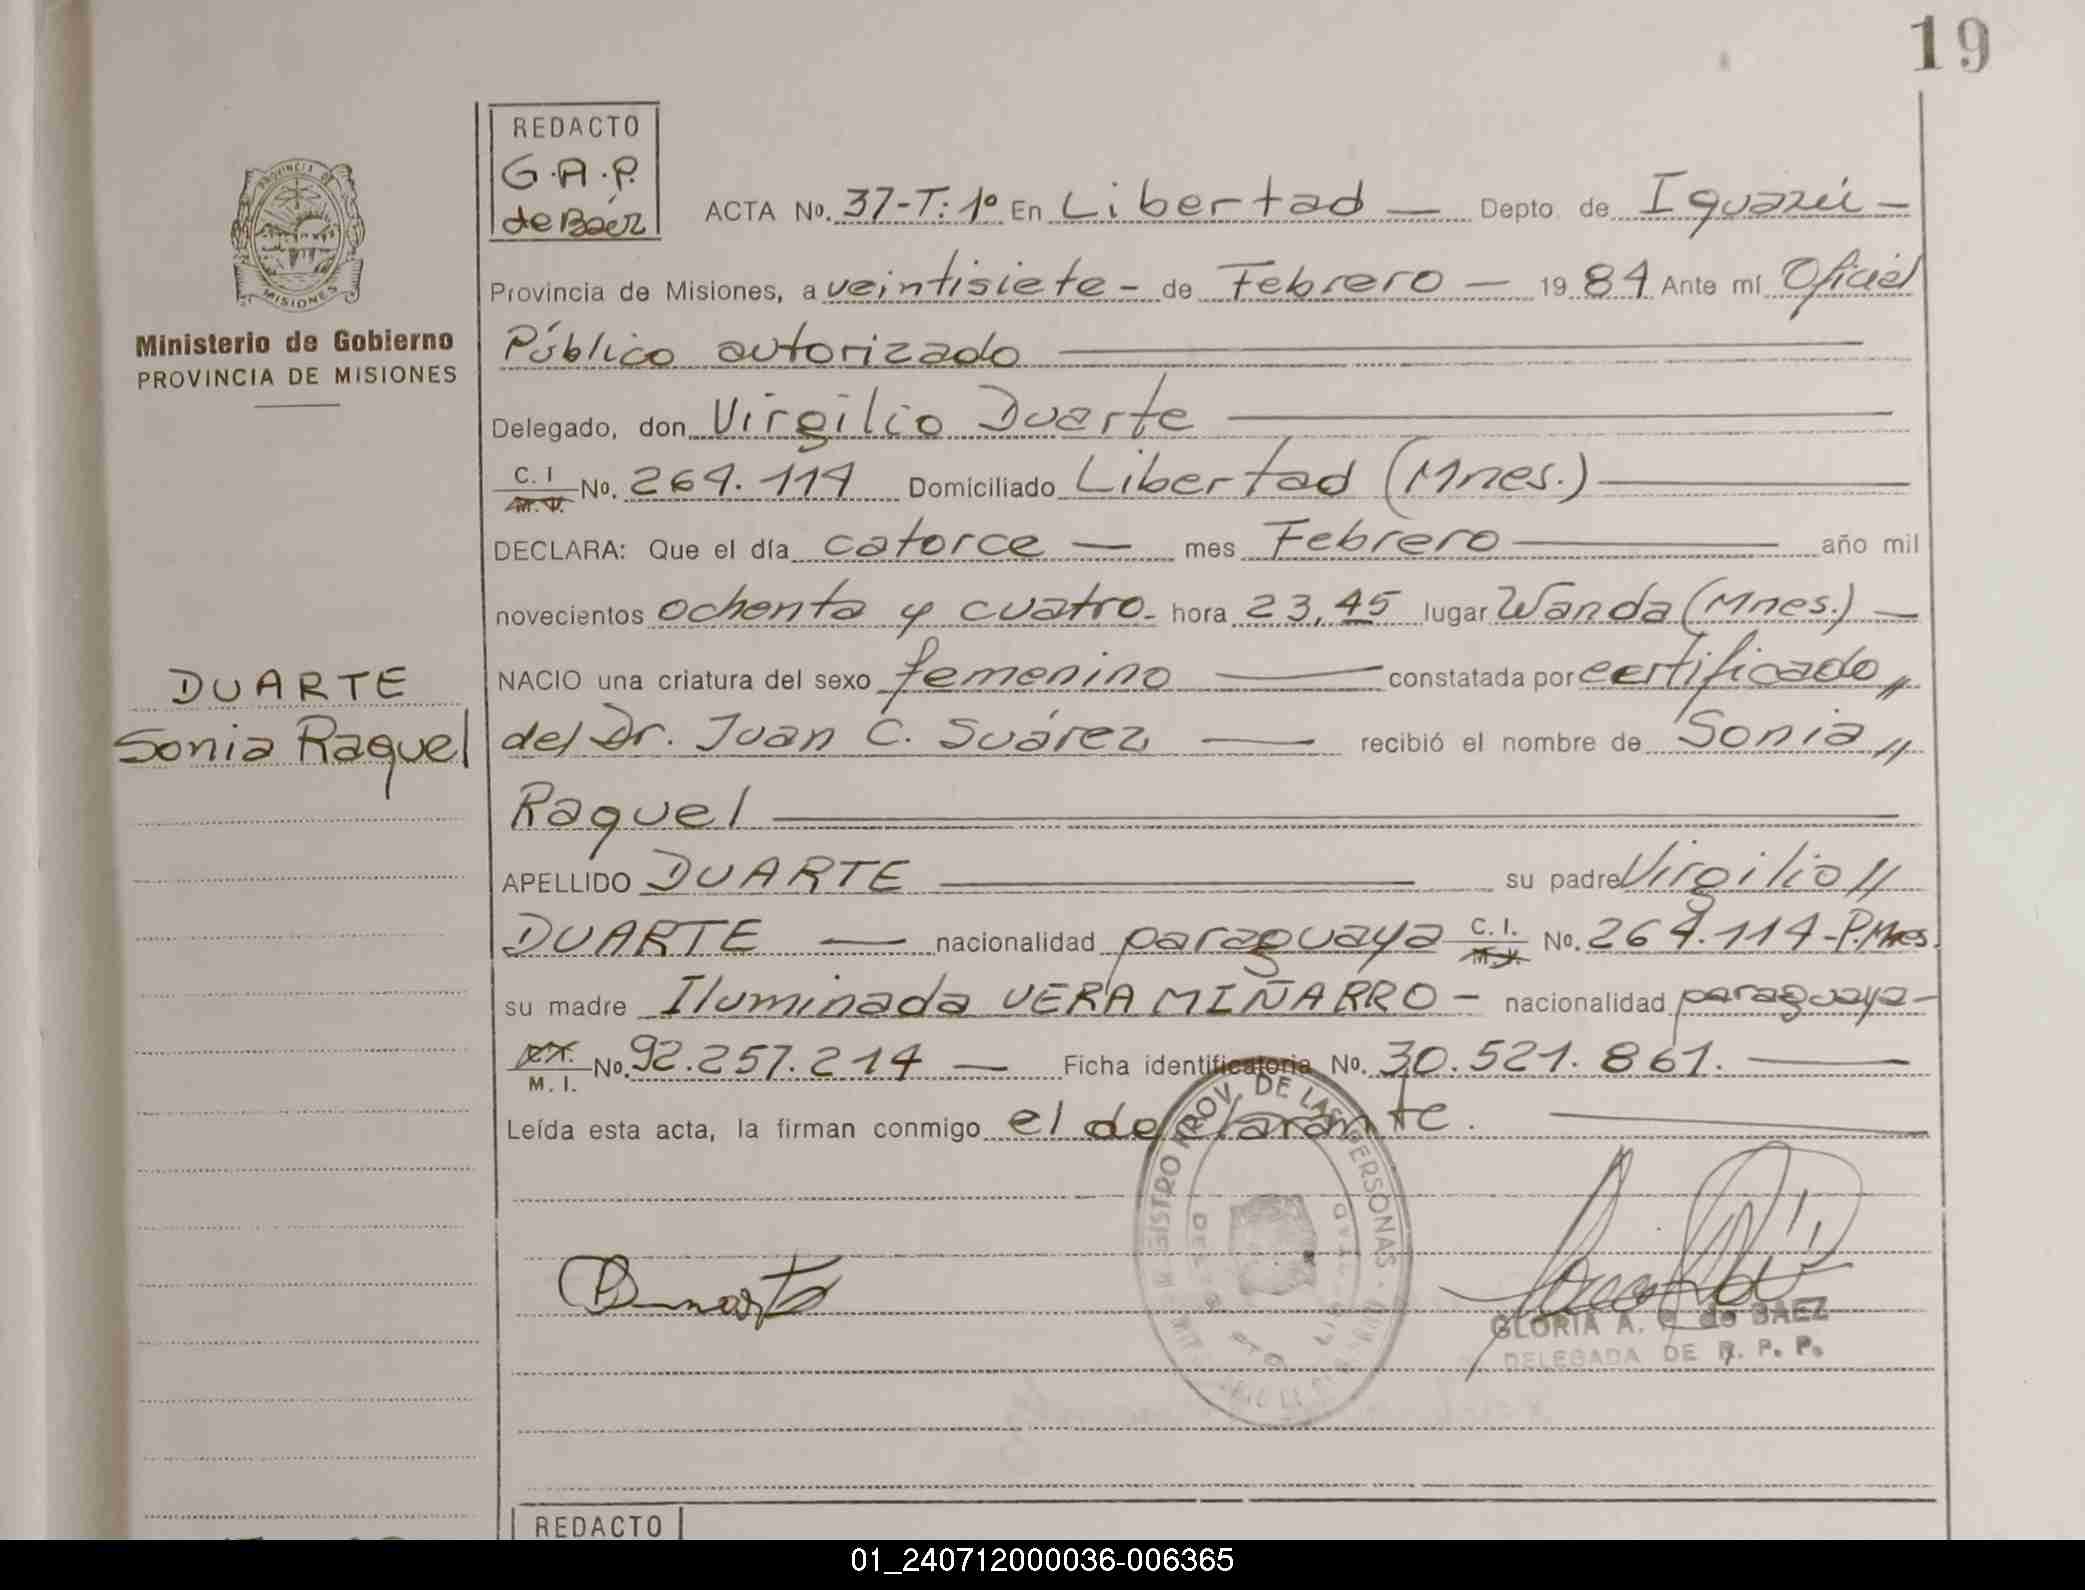 19
REDACTO
G.A.P.
de Báez
ACTA No. 37-T: 1º En Libertad — Depto. de Iguazú -
PROVINCIA DE
MISIONES
Ministerio de Gobierno
PROVINCIA DE MISIONES
Provincia de Misiones, a veintisiete - de Febrero — 1984 Ante mí Oficial
Público autorizado
Delegado, don Virgilio Duarte
C. I
M. I. No. 264.114 Domiciliado Libertad (Mnes.)
DECLARA: Que el día catorce — mes Febrero — año mil
novecientos ochenta y cuatro- hora 23,45 lugar Wanda (Mnes.) —
NACIO una criatura del sexo femenino — constatada por certificado //
DUARTE
Sonia Raquel
del Dr. Juan C. Suárez — recibió el nombre de Sonia //
Raquel
APELLIDO DUARTE — su padre Virgilio //
DUARTE — nacionalidad paraguaya C. I. No. 264.114-P.Mnes.
su madre Iluminada VERA MIÑARRO - nacionalidad paraguaya -
M. I. No. 92.257.214 — Ficha identificatoria No. 30.521.861. —
Leída esta acta, la firman conmigo el declarante.
PROV. DE LAS PERSONAS
Duarte
GLORIA A. P. de BAEZ
DELEGADA DE R. P. P.
REDACTO
01_240712000036-006365